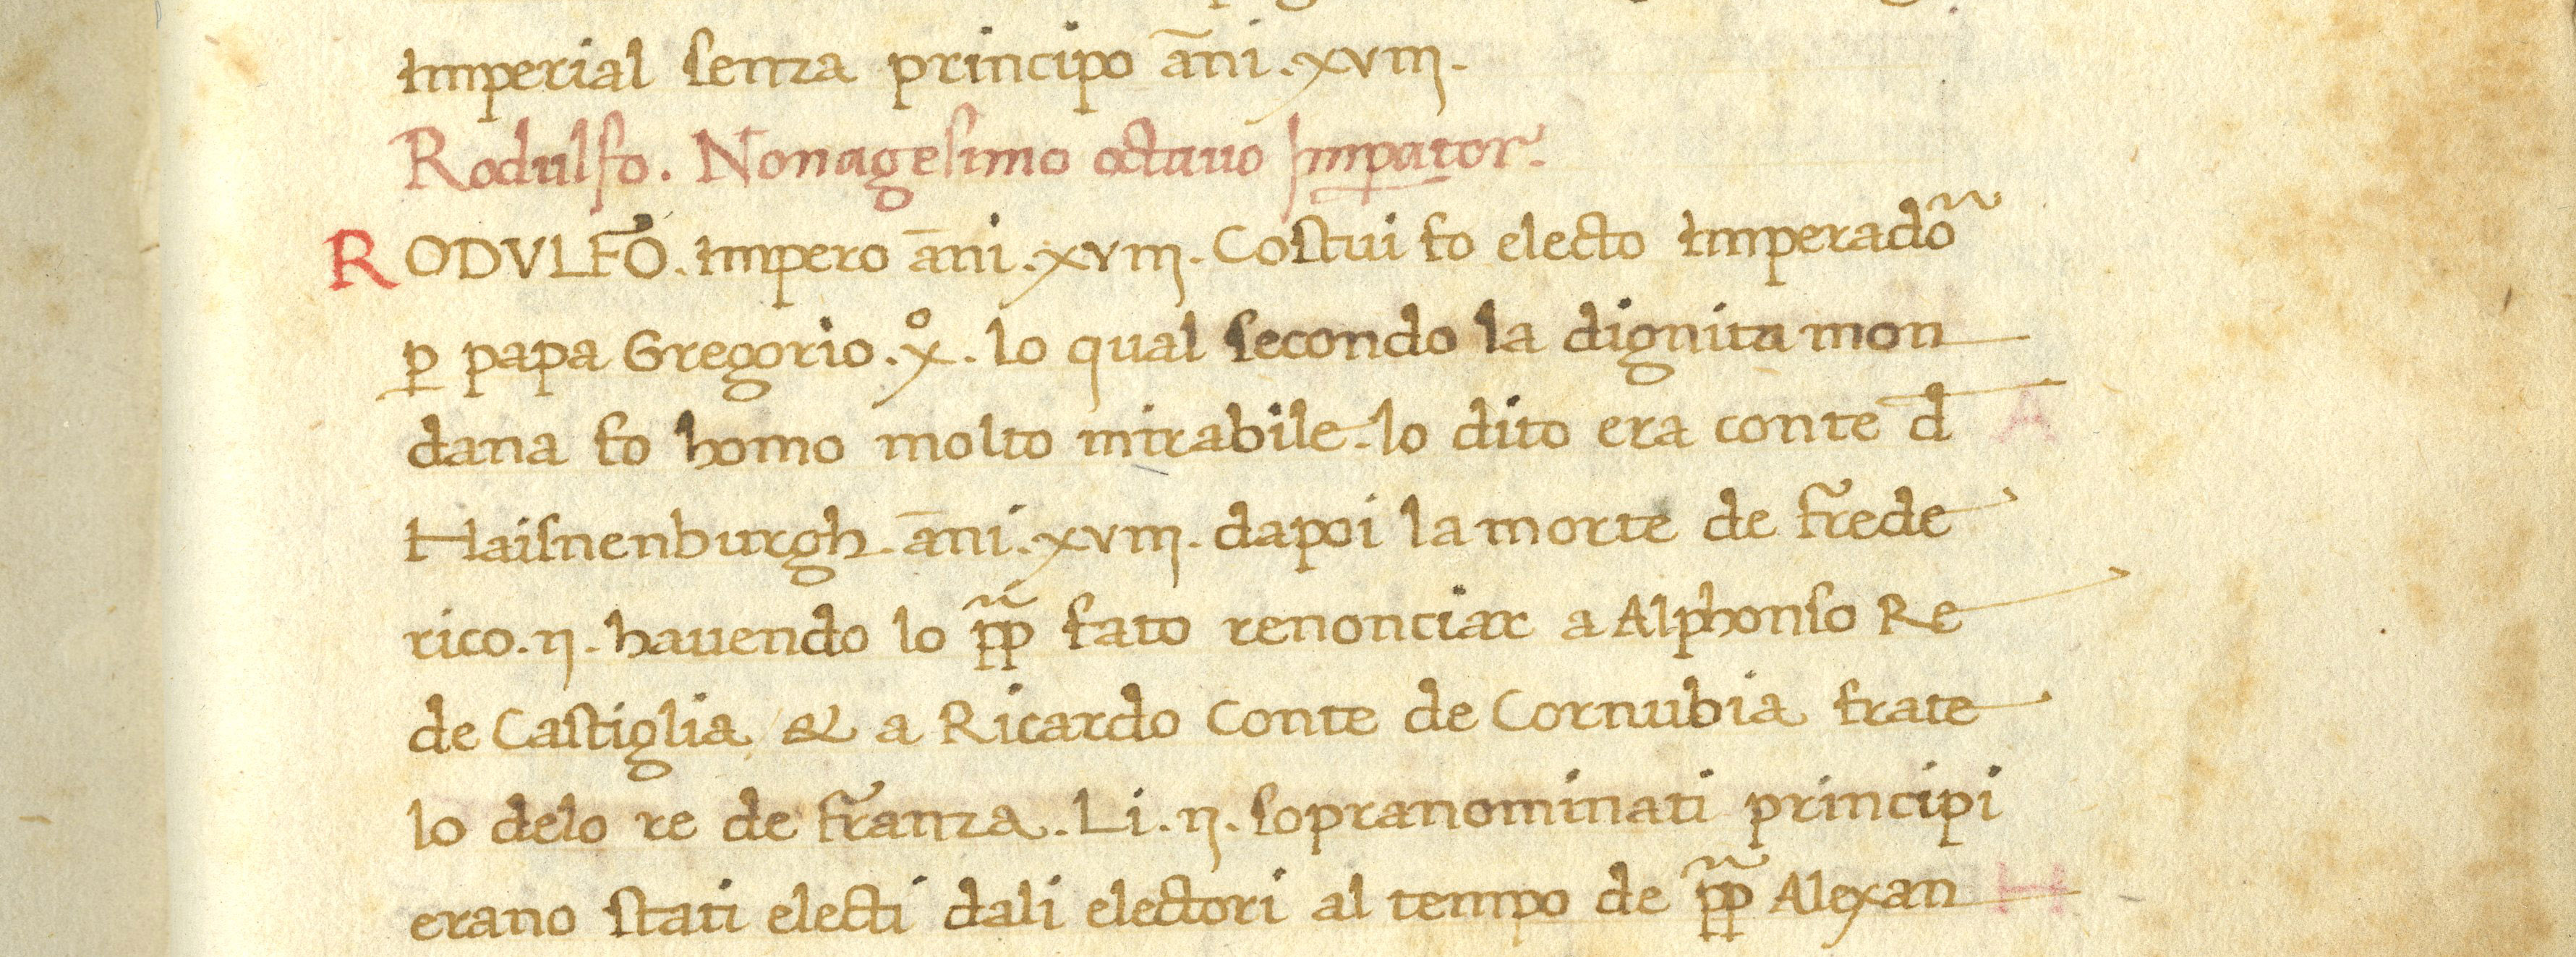 Imperial senza principo ãni .xviij.
Rodulfo. Nonagesimo octauo Imꝑator.
RODVLFO. Impero ãni .xviij. Costui fo electo Imperado᷑
ꝑ papa Gregorio .xº. lo qual secondo la dignita mon
dana fo homo molto mirabile. lo dito era conte d̄
Haisnenburgh. ãni .xviij. dapoi la morte de frede
rico .ij. hauendo lo p̃p fato renonciar a Alphonso Re
de Castiglia & a Ricardo Conte de Cornubia frate
lo delo re de franza. Li .ij. sopranominati principi
erano stati electi dali electori al tempo de p̃p Alexan